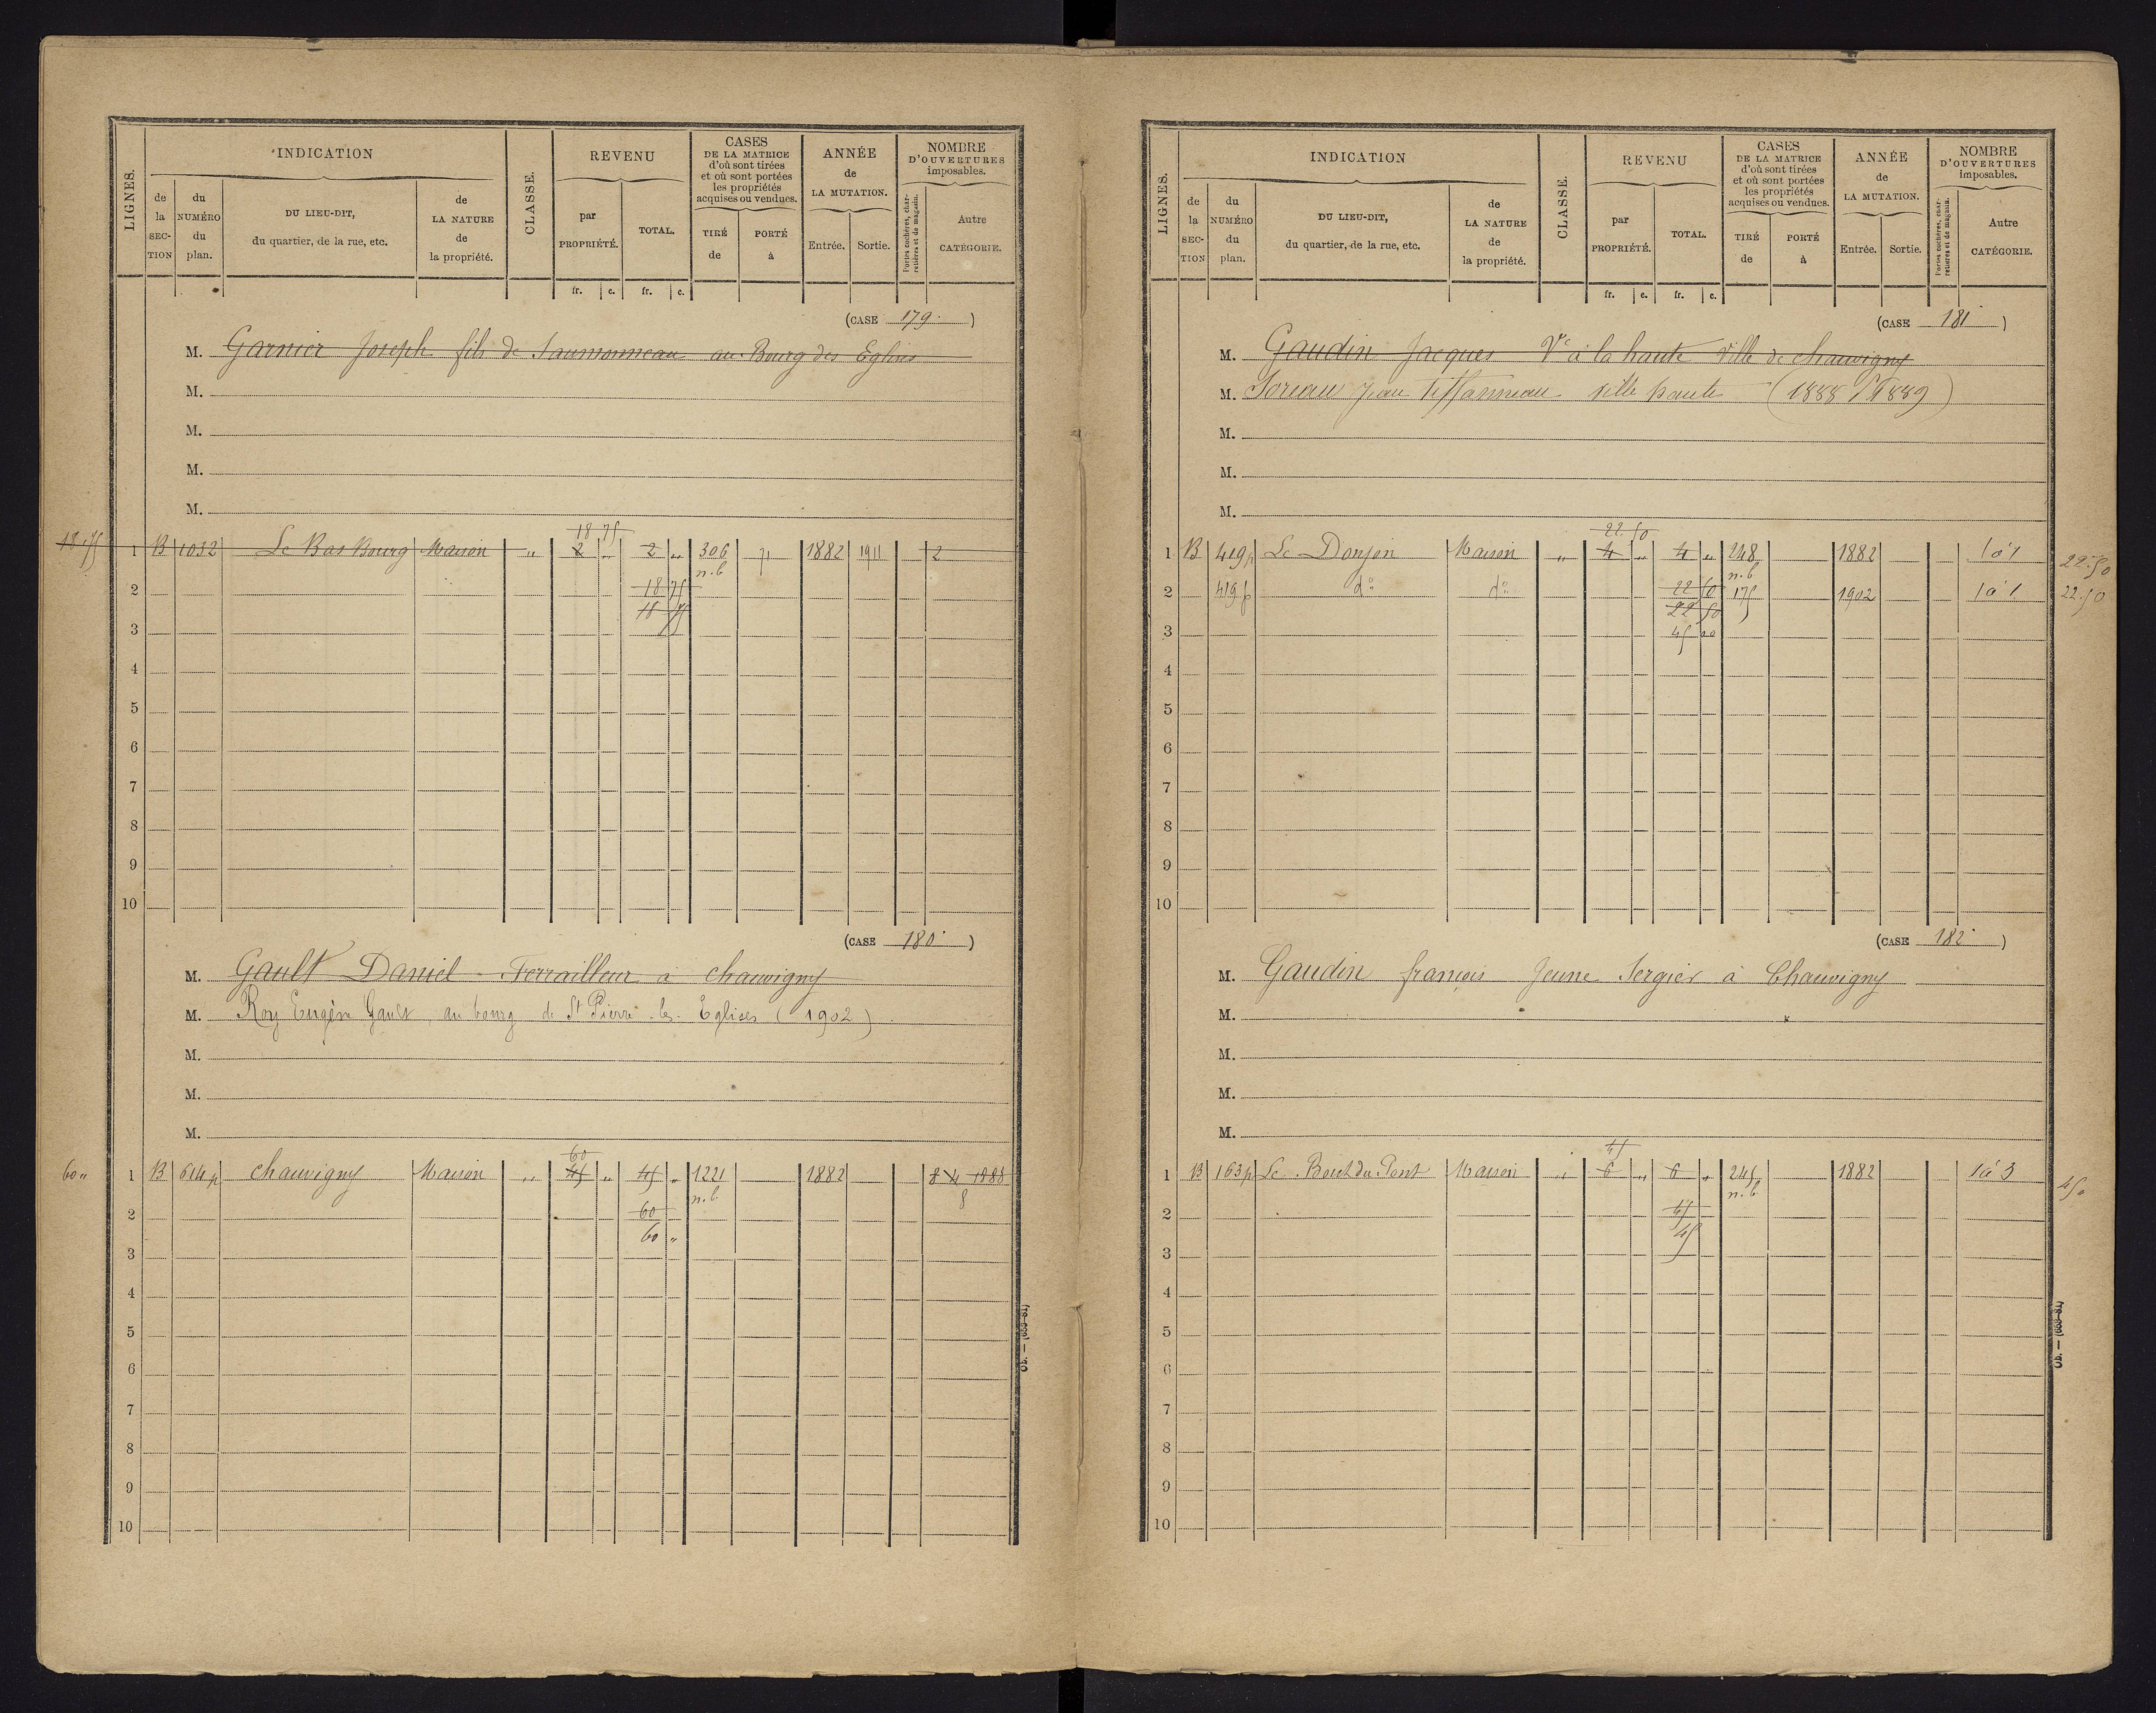 LIGNES.
INDICATION
de la SECTION
du NUMÉRO du plan.
DU LIEU-DIT, du quartier, de la rue, etc.
de LA NATURE de la propriété.
CLASSE.
REVENU
par PROPRIÉTÉ.
TOTAL.
CASES DE LA MATRICE d'où sont tirées et où sont portées les propriétés acquises ou vendues.
TIRÉ de
PORTÉ à
ANNÉE de LA MUTATION.
Entrée.
Sortie.
NOMBRE D'OUVERTURES imposables.
Portes cochères, charretières et de magasin.
Autre CATÉGORIE.
fr. c. fr. c.
(CASE 179.)
M. Garnier Joseph fils de Saumonneau au Bourg des Eglises
M.
M.
M.
M.
18 75
18 75 1 B 1032 Le Bas Bourg Maison " 2 " 2 " 306 71 1882 1911 2
n.b
2 18 75
18 75
3
4
5
6
7
8
9
10
(CASE 180.)
M. Gault Daniel Ferrailleur à chauvigny
M. Roy Eugène Gault au bourg de St Pierre-les-Eglises (1902)
M.
M.
M.
60
60 " 1 B 614 p chauvigny Maison " 45 " 45 " 1221 1882 8 4 1888
n.b. 8
2 60
60 "
3
4
5
6
7
8
9
10
Ob. — (653-81)
LIGNES.
INDICATION
de la SECTION
du NUMÉRO du plan.
DU LIEU-DIT, du quartier, de la rue, etc.
de LA NATURE de la propriété.
CLASSE.
REVENU
par PROPRIÉTÉ.
TOTAL.
CASES DE LA MATRICE d'où sont tirées et où sont portées les propriétés acquises ou vendues.
TIRÉ de
PORTÉ à
ANNÉE de LA MUTATION.
Entrée.
Sortie.
NOMBRE D'OUVERTURES imposables.
Portes cochères, charretières et de magasin.
Autre CATÉGORIE.
fr. c. fr. c.
(CASE 181)
M. Gaudin Jacques Ve à la haute Ville de chauvigny
M. Jean ville haute (1888 1889)
M.
M.
M.
22 50
1 B 419 p Le Donjon Maison " 4 " 4 " 248 1882 1 à 1 22.50
n.b
2 419 p do do 22 50 175 1902 1 à 1 22.50
22 50
3 45 00
4
5
6
7
8
9
10
(CASE 182.)
M. Gaudin françois Jeune Sergier à Chauvigny
M.
M.
M.
M.
45
1 B 163 p Le Bout du Pont Maison " 6 " 6 " 245 1882 1 à 3
n.b
2 45
45
3
4
5
6
7
8
9
10
Ob. — (653-81)